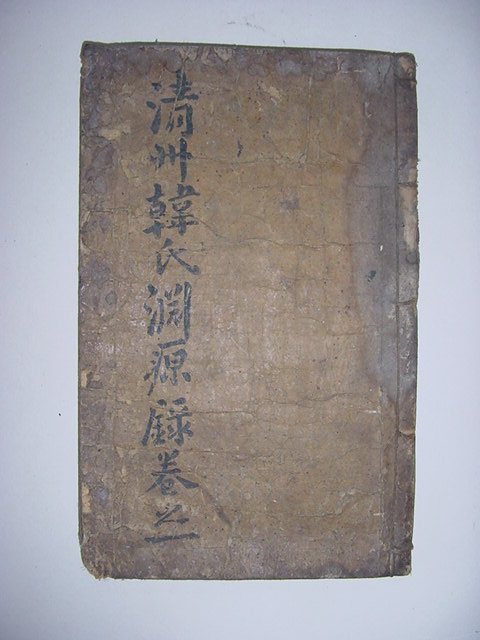 清州韓氏淵源錄卷之一